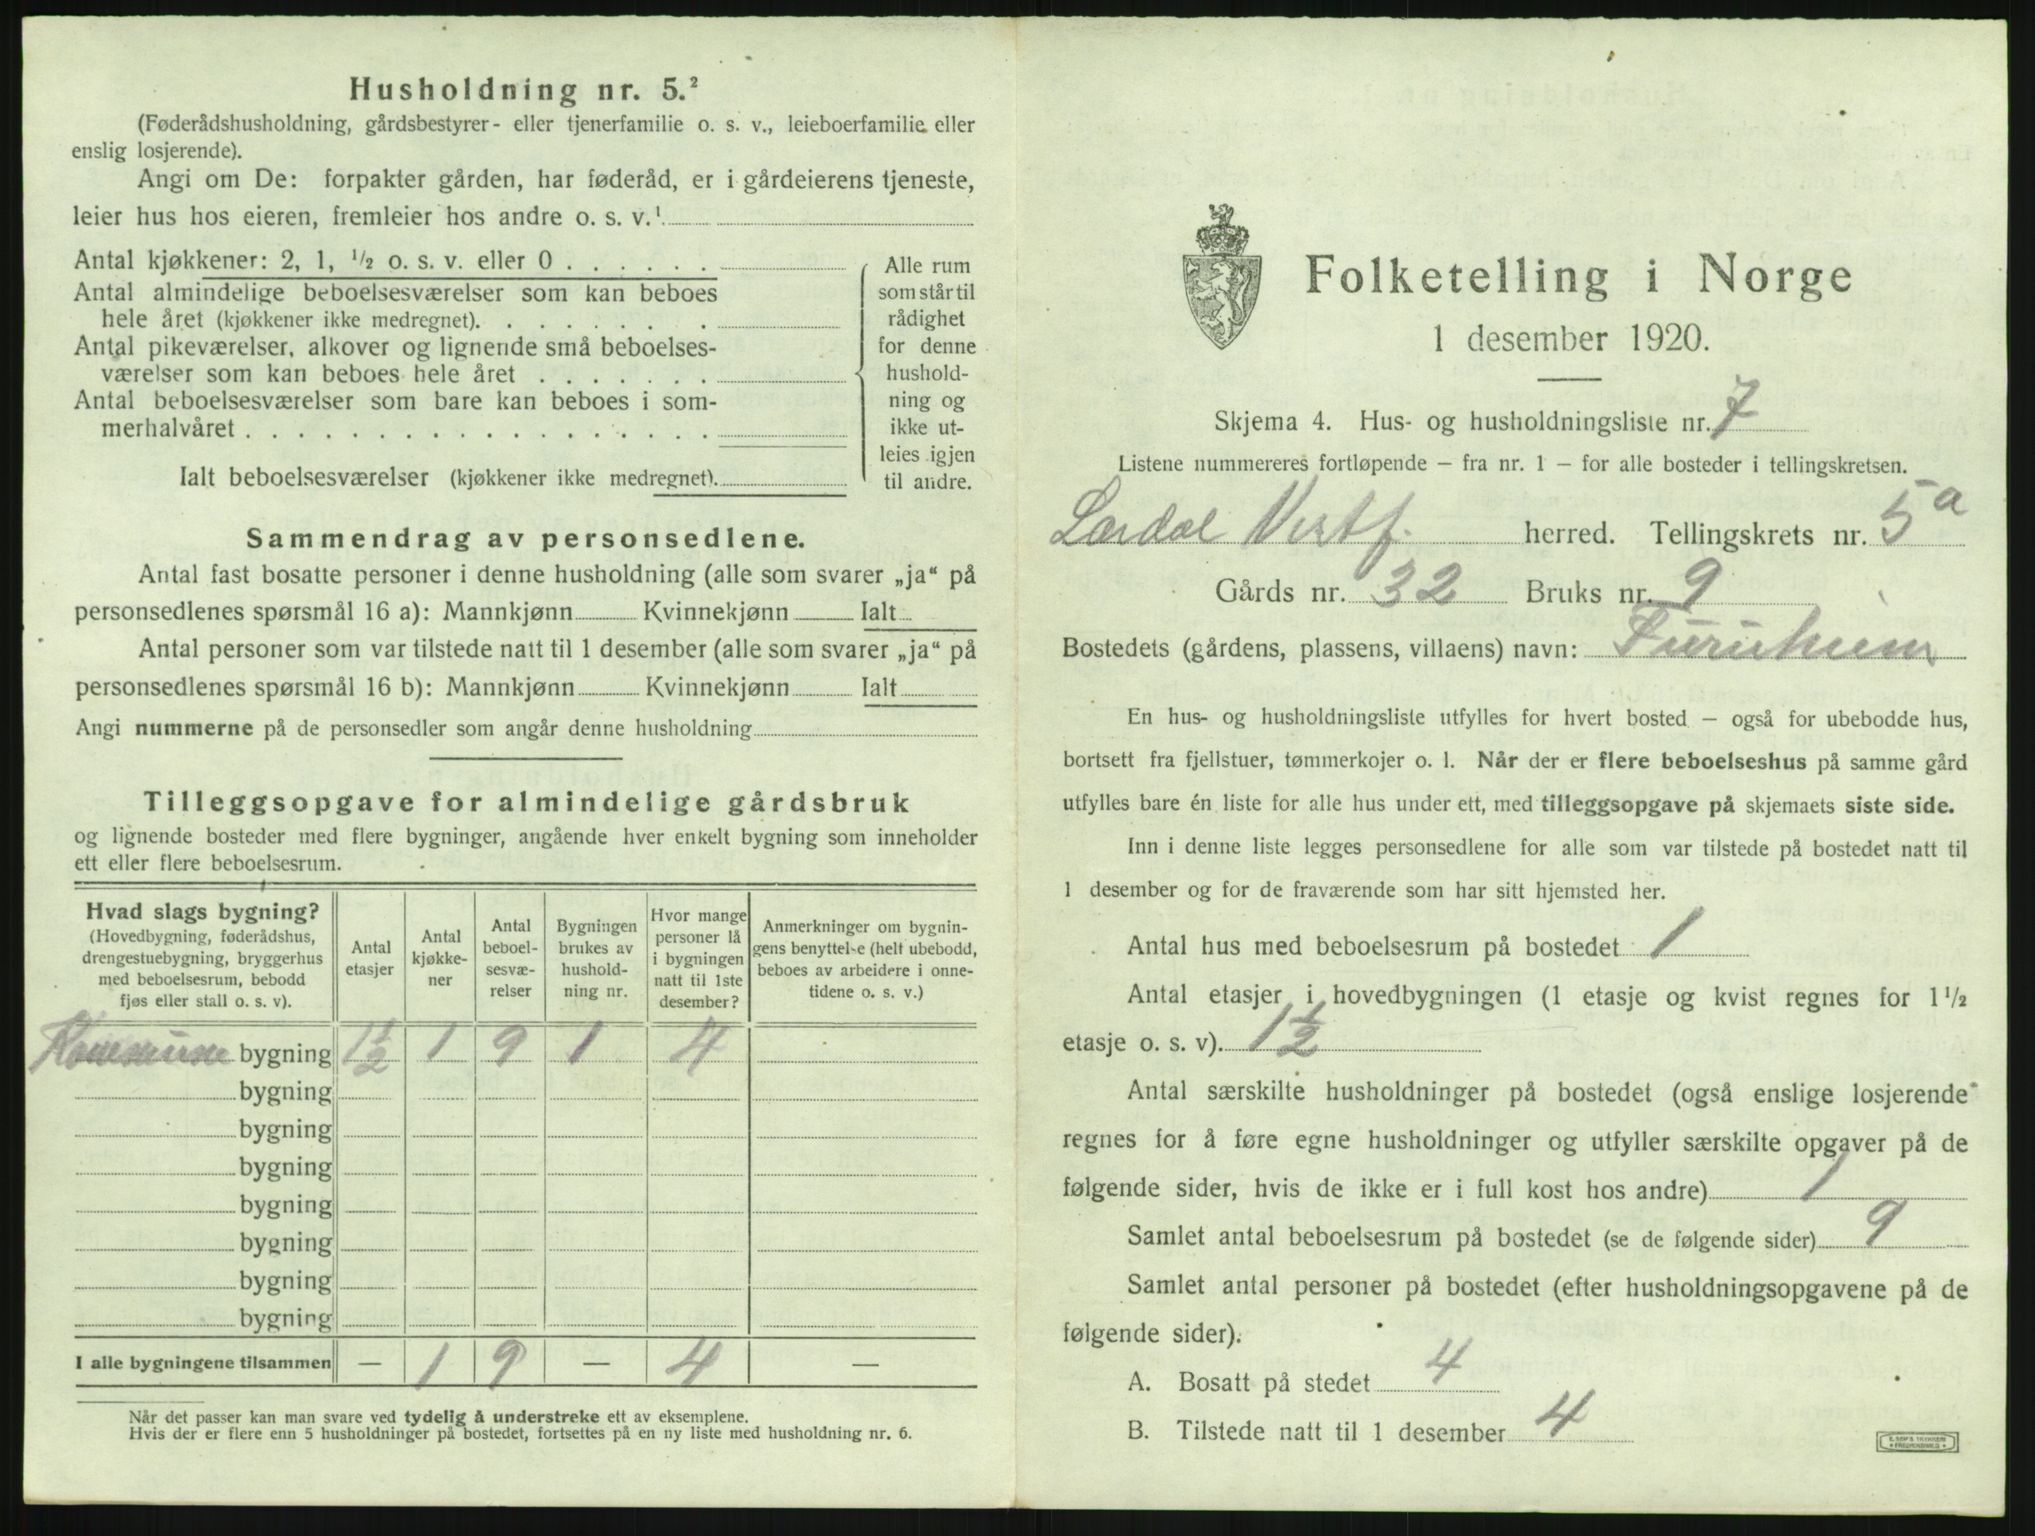 Husholdning nr. 5.²
(Føderådshusholdning, gårdsbestyrer- eller tjenerfamilie o. s. v., leieboerfamilie eller
enslig losjerende).
Angi om De: forpakter gården, har føderåd, er i gårdeierens tjeneste,
leier hus hos eieren, fremleier hos andre o. s. v.¹
Antal kjøkkener: 2, 1, ½ o. s. v. eller 0 . . . . . .
Antal almindelige beboelsesværelser som kan beboes
hele året (kjøkkener ikke medregnet). . . . . . . .
Antal pikeværelser, alkover og lignende små beboelses-
værelser som kan beboes hele året . . . . . . .
Antal beboelsesværelser som bare kan beboes i som-
merhalvåret . . . . . . . . . . . . . . . . . .
Ialt beboelsesværelser (kjøkkener ikke medregnet).
Alle rum
som står til
rådighet
for denne
hushold-
ning og
ikke ut-
leies igjen
til andre.
Sammendrag av personsedlene.
Antal fast bosatte personer i denne husholdning (alle som svarer „ja“ på
personsedlenes spørsmål 16 a): Mannkjønn Kvinnekjønn Ialt
Antal personer som var tilstede natt til 1 desember (alle som svarer „ja“ på
personsedlenes spørsmål 16 b): Mannkjønn Kvinnekjønn Ialt
Angi nummerne på de personsedler som angår denne husholdning
Tilleggsopgave for almindelige gårdsbruk
og lignende bosteder med flere bygninger, angående hver enkelt bygning som inneholder
ett eller flere beboelsesrum.
Hvad slags bygning?
(Hovedbygning, føderådshus,
drengestuebygning, bryggerhus
med beboelsesrum, bebodd
fjøs eller stall o. s. v).
Antal
etasjer
Antal
kjøkke-
ner
Antal
beboel-
sesvæ-
relser
Bygningen
brukes av
hushold-
ning nr.
Hvor mange
personer lå
i bygningen
natt til 1ste
desember?
Anmerkninger om bygnin-
gens benyttelse (helt ubebodd,
beboes av arbeidere i onne-
tidene o. s. v.)
Kommune bygning 1½ 1 9 1 4
bygning
bygning
bygning
bygning
bygning
bygning
bygning
I alle bygningene tilsammen — 1 9 — 4 —
Når det passer kan man svare ved tydelig å understreke ett av eksemplene.
Hvis der er flere enn 5 husholdninger på bostedet, fortsettes på en ny liste med husholdning nr. 6.
Folketelling i Norge
1 desember 1920.
Skjema 4. Hus- og husholdningsliste nr. 7
Listene nummereres fortløpende – fra nr. 1 – for alle bosteder i tellingskretsen.
Lardal Vestf. herred. Tellingskrets nr. 5a
Gårds nr. 32 Bruks nr. 9
Bostedets (gårdens, plassens, villaens) navn: Furuheim
En hus- og husholdningsliste utfylles for hvert bosted – også for ubebodde hus,
bortsett fra fjellstuer, tømmerkojer o. l. Når der er flere beboelseshus på samme gård
utfylles bare én liste for alle hus under ett, med tilleggsopgave på skjemaets siste side.
Inn i denne liste legges personsedlene for alle som var tilstede på bostedet natt til
1 desember og for de fraværende som har sitt hjemsted her.
Antal hus med beboelsesrum på bostedet 1
Antal etasjer i hovedbygningen (1 etasje og kvist regnes for 1½
etasje o. s. v). 1½
Antal særskilte husholdninger på bostedet (også enslige losjerende
regnes for å føre egne husholdninger og utfyller særskilte opgaver på de
følgende sider, hvis de ikke er i full kost hos andre) 1
Samlet antal beboelsesrum på bostedet (se de følgende sider) 9
Samlet antal personer på bostedet (efter husholdningsopgavene på de
følgende sider).
A. Bosatt på stedet 4
B. Tilstede natt til 1 desember 4